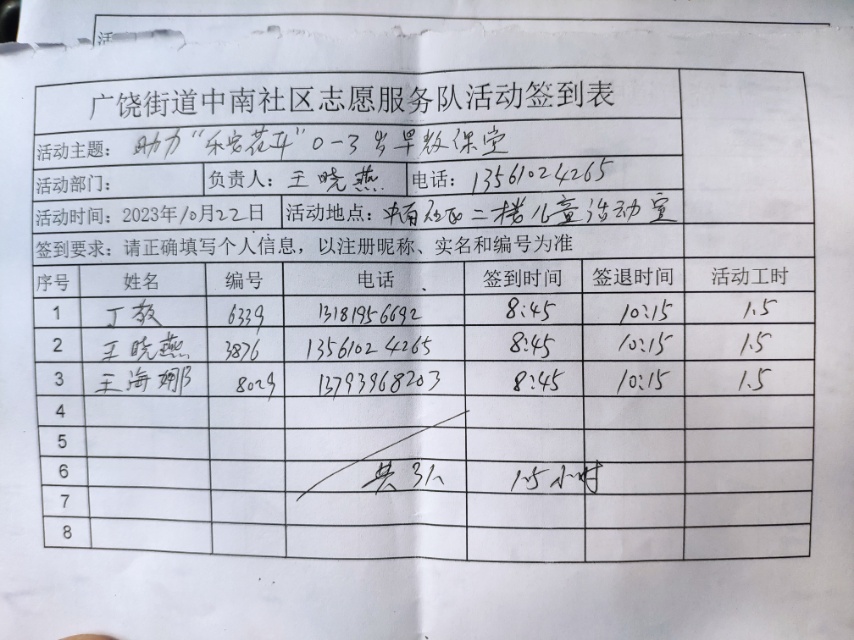 活
广饶街道中南社区志愿服务队活动签到表
活动主题: 助力“乐安花开”0-3岁早教课堂
活动部门: 负责人: 王晓燕 电话: 13561024265
活动时间: 2023年10月22日 活动地点: 中南社区二楼儿童活动室
签到要求: 请正确填写个人信息, 以注册昵称、实名和编号为准
序号 姓名 编号 电话 签到时间 签退时间 活动工时
1 丁敏 6339 13181956692 8:45 10:15 1.5
2 王晓燕 3876 13561024265 8:45 10:15 1.5
3 王海娜 8029 13793968203 8:45 10:15 1.5
4
5
6 共3人 1.5小时
7
8